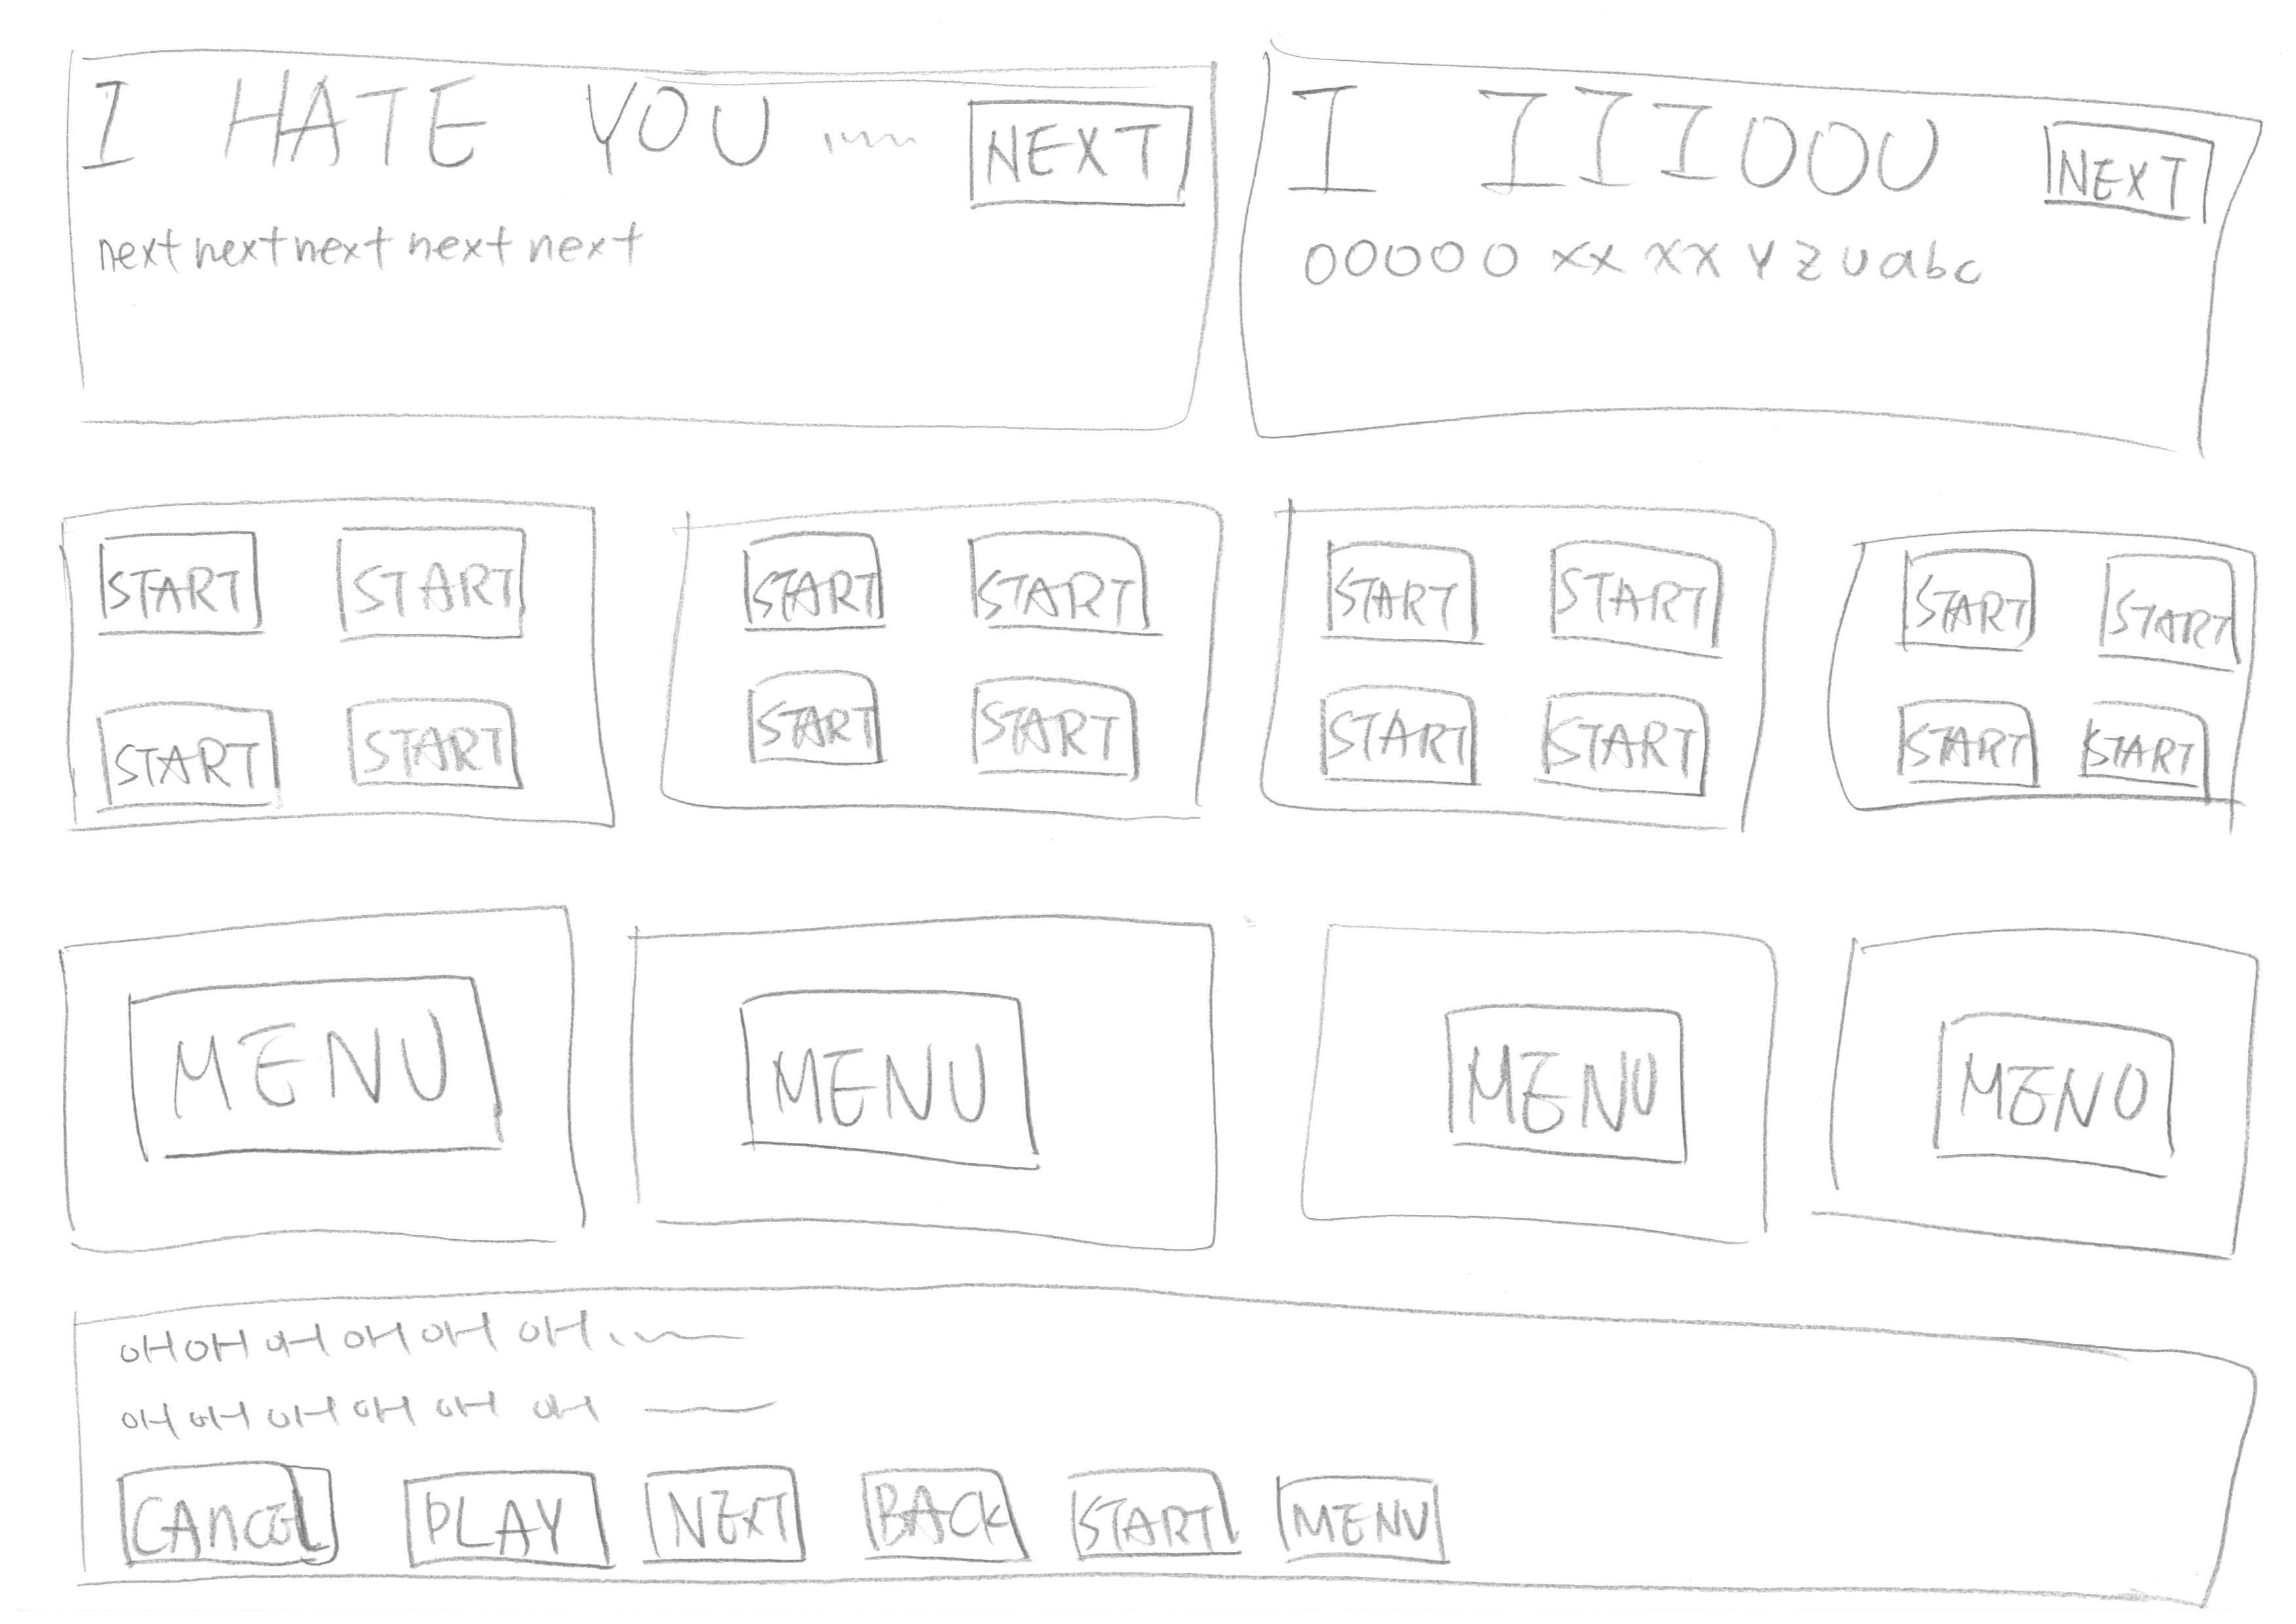 I HATE YOU NEXT
next next next next next
I IIIOOU NEXT
OOOOO XX XX Y Z U a b c
START START
START START
START START
START START
START START
START START
START START
START START
MENU
MENU
MENU
MENU
OH OH OH OH OH OH
OH OH OH OH OH OH
CANCEL PLAY NEXT BACK START MENU